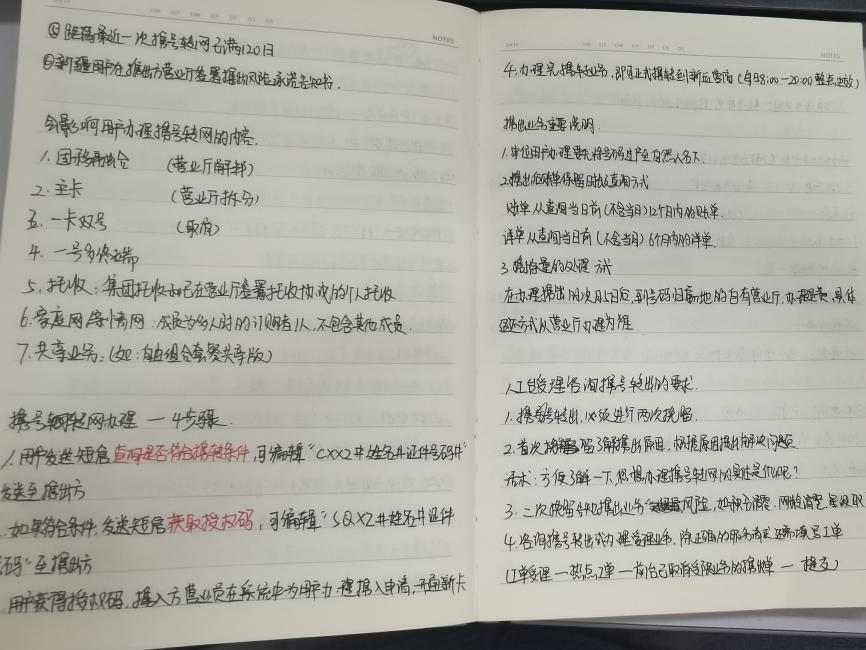 NOTES
⑤距离最近一次携号转网已满120日
⑥新疆用户在携出方营业厅签署携出风险承诺告知书.
会影响用户办理携号转网的内容.
1. 固移融合 (营业厅解绑)
2. 主卡 (营业厅拆分)
3. 一卡双号 (取消)
4. 一号多终端
5. 托收: 集团托收和已在营业厅签署托收协议的个人托收
6. 家庭网/亲情网: 成员为多人时的订购者1人, 不包含其他成员.
7. 共享业务: (如: 自由组合套餐共享版)
携号转网办理 — 4步骤.
1. 用户发送短信查询是否符合携转条件, 可编辑“CXXZ#姓名#证件号码#”
发送至携出方
如果符合条件, 发送短信获取授权码, 可编辑“SQXZ#姓名#证件
码”至携出方
用户获得授权码, 携入方营业员在系统中为用户办理携入申请, 开通新卡
DATE
NOTES
4. 办理完携转业务, 即可正式携转到新运营商 (每日8:00-20:00整点生效)
携出业务重要说明.
1. 单位用户办理要先将号码过户至自然人名下.
2. 携出后账单保留时长及查询方式
账单从查询当日前 (不含当月) 12个月内的账单.
详单从查询当日前 (不含当月) 6个月内的详单.
3. 携结余量的处理方式
在办理携出的次月5日后, 到号码归属地的自有营业厅, 办理退费, 具体
方式从营业厅办理为准
人工受理咨询携号转出的要求.
1. 携号转出, 必须进行两次挽留.
2. 首次挽留了解携出原因, 根据原因提出解决问题
话术: 方便了解一下, 您想办理携号转网的具体是什么呢?
3. 二次挽留告知携出业务风险, 如积分清零、网龄清零、星级取
4. 咨询携号转出或办理受理业务, 除正确的服务请求还需填写工单
(工单受理 — 热点工单 — 前台已取消受限业务的携转单 — 提交)